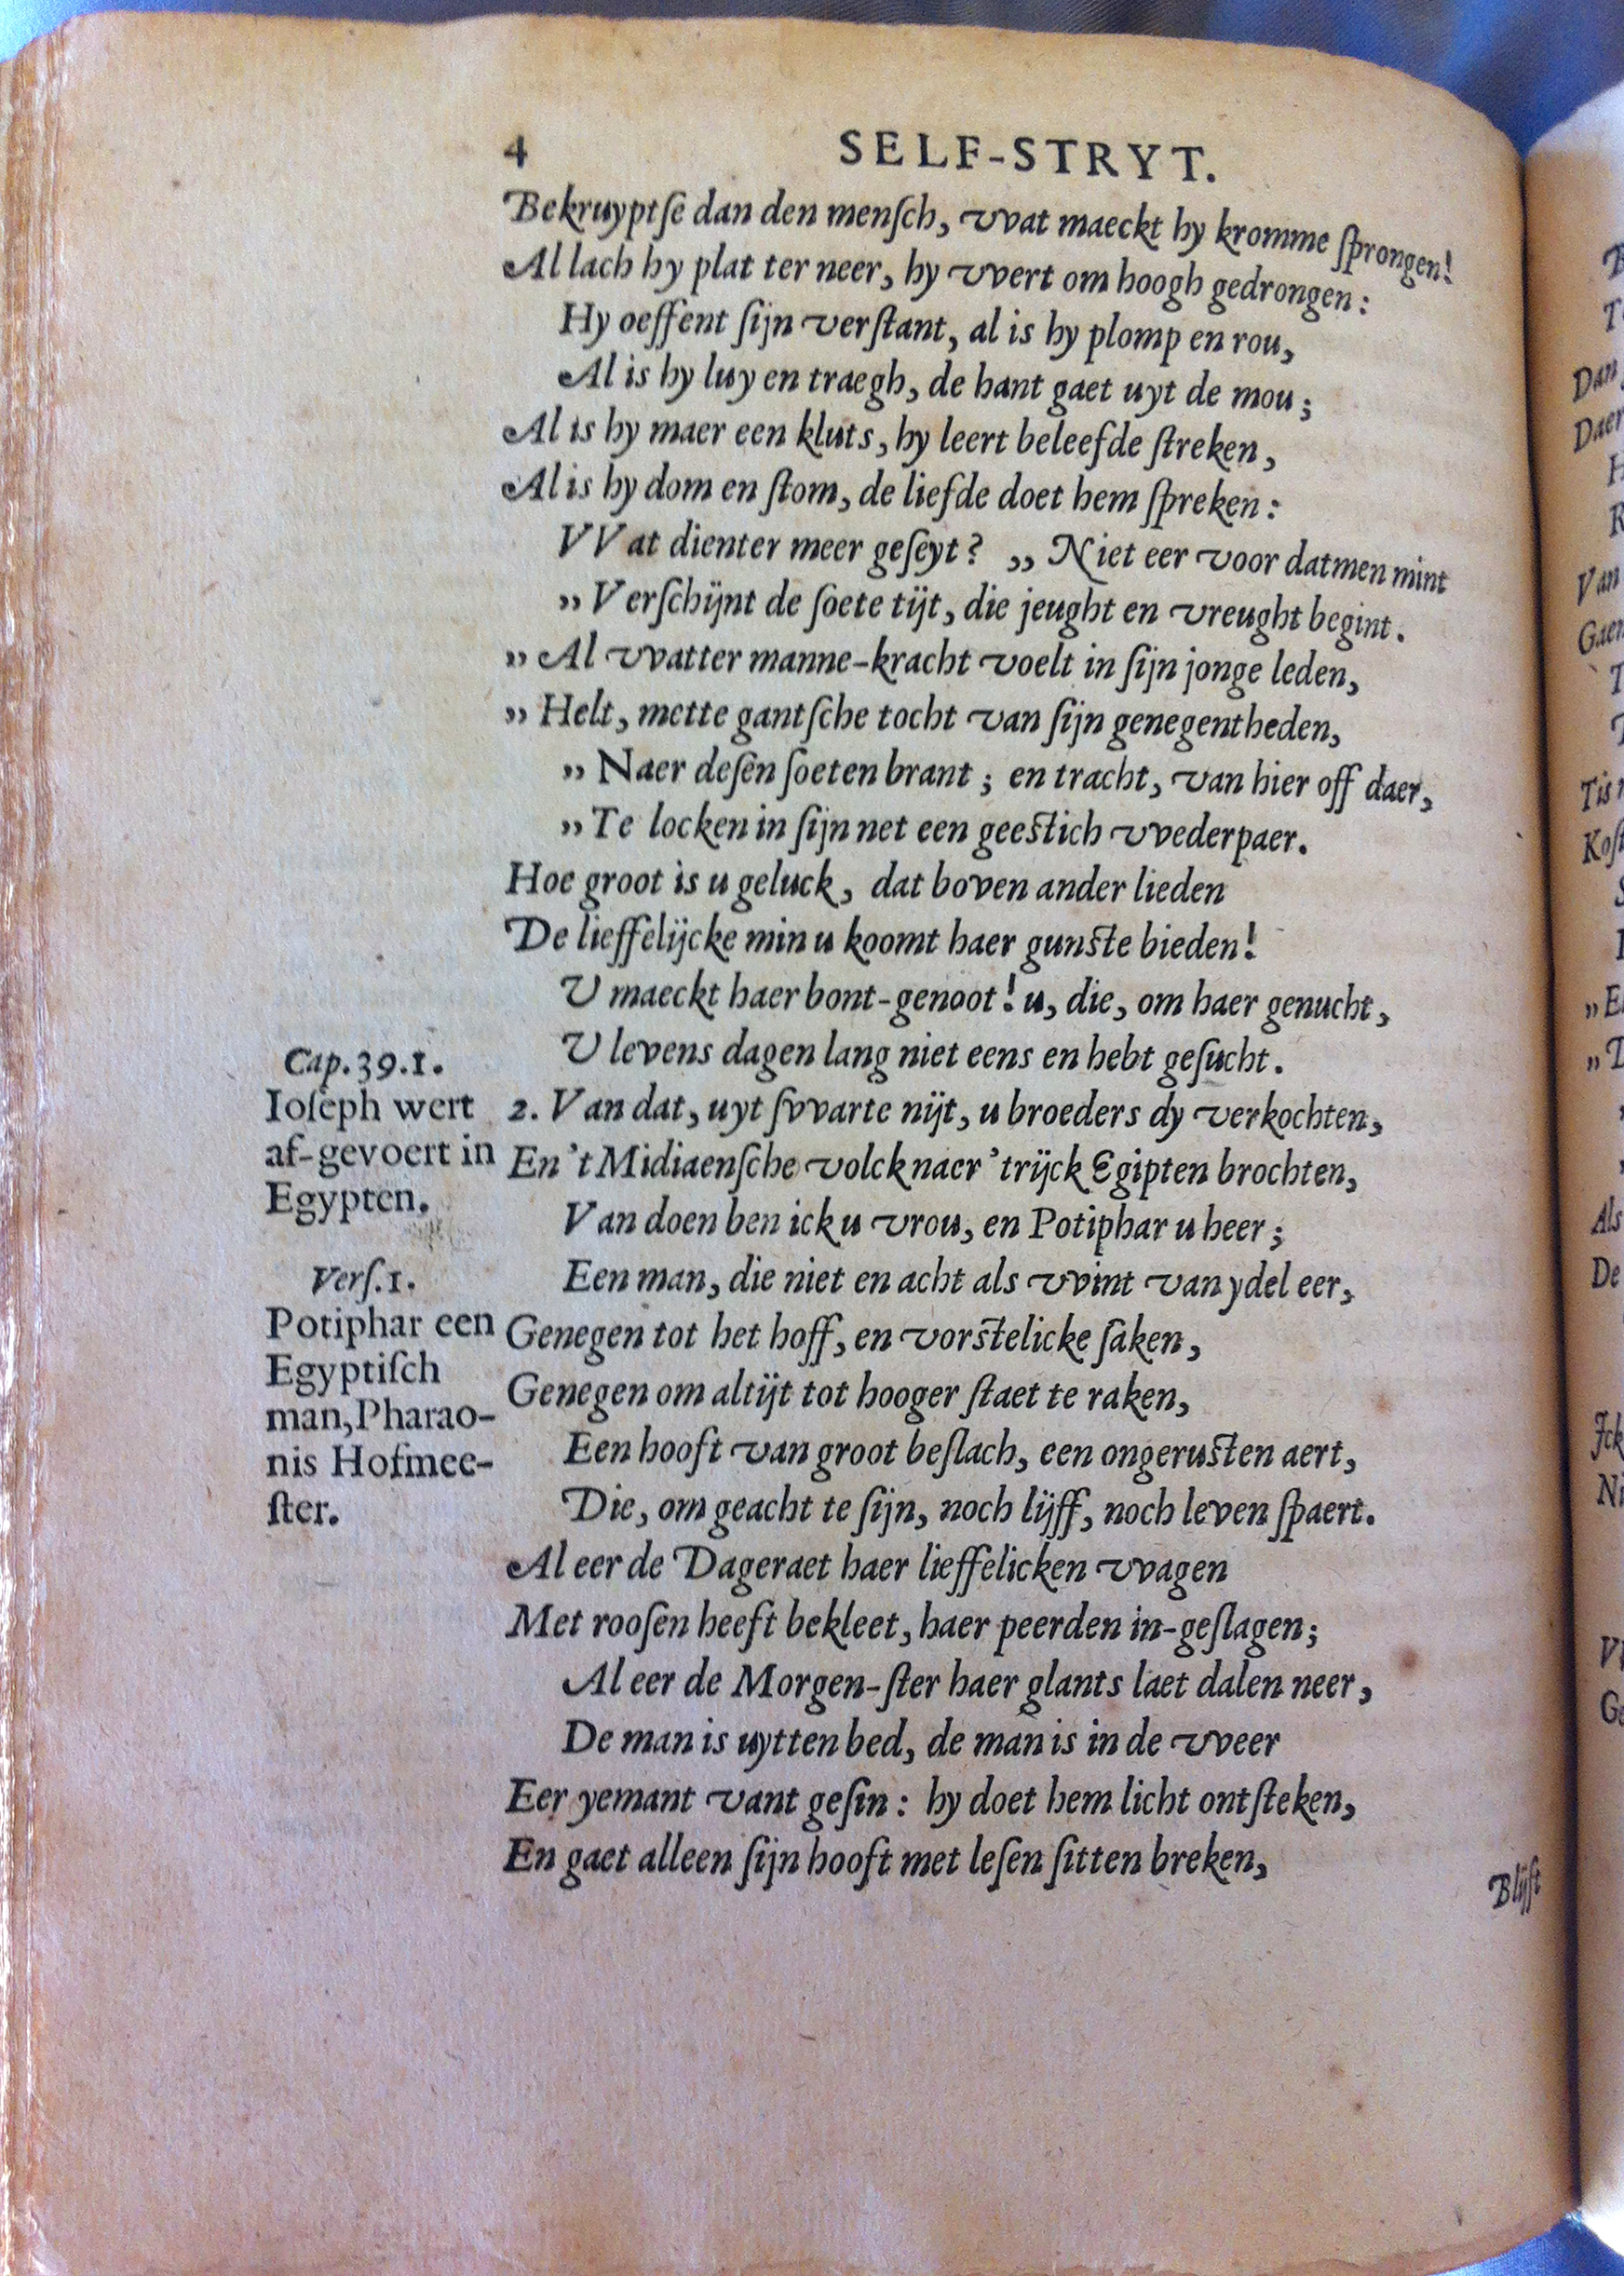 4 SELF-STRYT.
Bekruyptſe dan den menſch, vvat maeckt hy kromme ſprongen!
Al lach hy plat ter neer, hy vvert om hoogh gedrongen:
Hy oeffent ſijn verſtant, al is hy plomp en rou,
Al is hy luy en traegh, de hant gaet uyt de mou;
Al is hy maer een kluts, hy leert beleefde ſtreken,
Al is hy dom en ſtom, de liefde doet hem ſpreken:
VVat dienter meer geſeyt? „ Niet eer voor datmen mint
„ Verſchijnt de ſoete tijt, die jeught en vreught begint.
„ Al vvatter manne-kracht voelt in ſijn jonge leden,
„ Helt, mette gantſche tocht van ſijn genegentheden,
„ Naer deſen ſoeten brant; en tracht, van hier off daer,
„ Te locken in ſijn net een geeſtich vvederpaer.
Hoe groot is u geluck, dat boven ander lieden
De lieffelijcke min u koomt haer gunſte bieden!
V maeckt haer bont-genoot! u, die, om haer genucht,
V levens dagen lang niet eens en hebt geſucht.
Cap. 39.1.
Ioſeph wert
af-gevoert in
Egypten.
2. Van dat, uyt ſvvarte nijt, u broeders dy verkochten,
En 't Midiaenſche volck naer 'trijck Egipten brochten,
Van doen ben ick u vrou, en Potiphar u heer;
Een man, die niet en acht als vvint van ydel eer,
Verſ. 1.
Potiphar een
Egyptiſch
man, Pharao-
nis Hofmee-
ſter.
Genegen tot het hoff, en vorſtelicke ſaken,
Genegen om altijt tot hooger ſtaet te raken,
Een hooft van groot beſlach, een ongeruſten aert,
Die, om geacht te ſijn, noch lijff, noch leven ſpaert.
Al eer de Dageraet haer lieffelicken vvagen
Met rooſen heeft bekleet, haer peerden in-geſlagen;
Al eer de Morgen-ſter haer glants laet dalen neer,
De man is uytten bed, de man is in de vveer
Eer yemant vant geſin: hy doet hem licht ontſteken,
En gaet alleen ſijn hooft met leſen ſitten breken,
Blijft